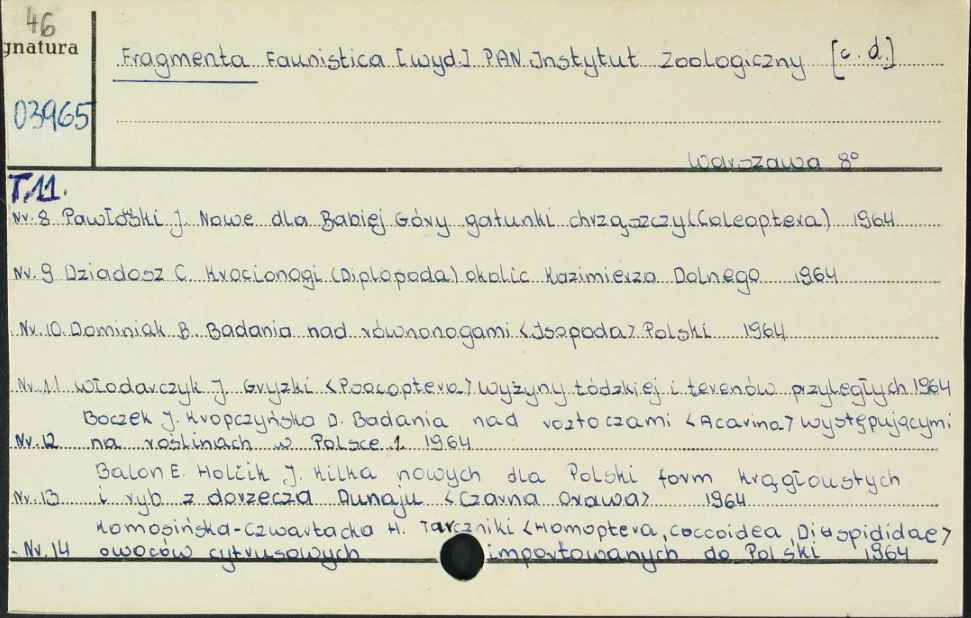 46
gnatura
Fragmenta Faunistica [wyd.] PAN Instytut Zoologiczny [c.d.]
03965
Warszawa 8º
T.11.
Nr.8 Pawłowski J. Nowe dla Babiej Góry gatunki chrząszczy (Coleoptera) 1964
Nr.9 Dziadosz C. Krocionogi (Diplopoda) okolic Kazimierza Dolnego 1964
Nr.10. Dominiak B. Badania nad równonogami <Isopoda> Polski 1964
Nr.11 Włodarczyk J. Gryzki <Psocoptera> Wyżyny Łódzkiej i terenów przyległych 1964
Boczek J. Kropczyńska D. Badania nad roztoczami <Acarina> występującymi
Nr.12 na roślinach w Polsce 1. 1964
Balon E. Holčik J. Kilka nowych dla Polski form krągłoustych
Nr.13 i ryb z dorzecza Dunaju <Czarna Orawa> 1964
Komosińska-Czwartacka H. Tarczniki <Homoptera, Coccoidea, Diaspididae>
- Nr.14 owoców cytrusowych importowanych do Polski 1964